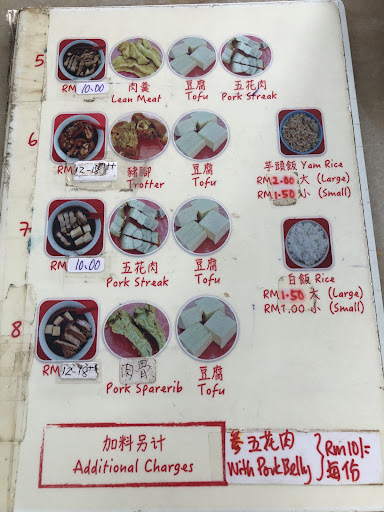 5
RM 10.00
肉羹
Lean Meat
豆腐
Tofu
五花肉
Pork Streak
6
RM 12-18
豬腳
Trotter
豆腐
Tofu
芋頭飯 Yam Rice
RM2.00 大 (Large)
RM1.50 小 (Small)
7
RM 10.00
五花肉
Pork Streak
豆腐
Tofu
白飯 Rice
RM1.50 大 (Large)
RM1.00 小 (Small)
8
RM 12-18
肉骨
Pork Sparerib
豆腐
Tofu
加料另计
Additional Charges
五花肉
With Pork Belly
Rm10/=
每份